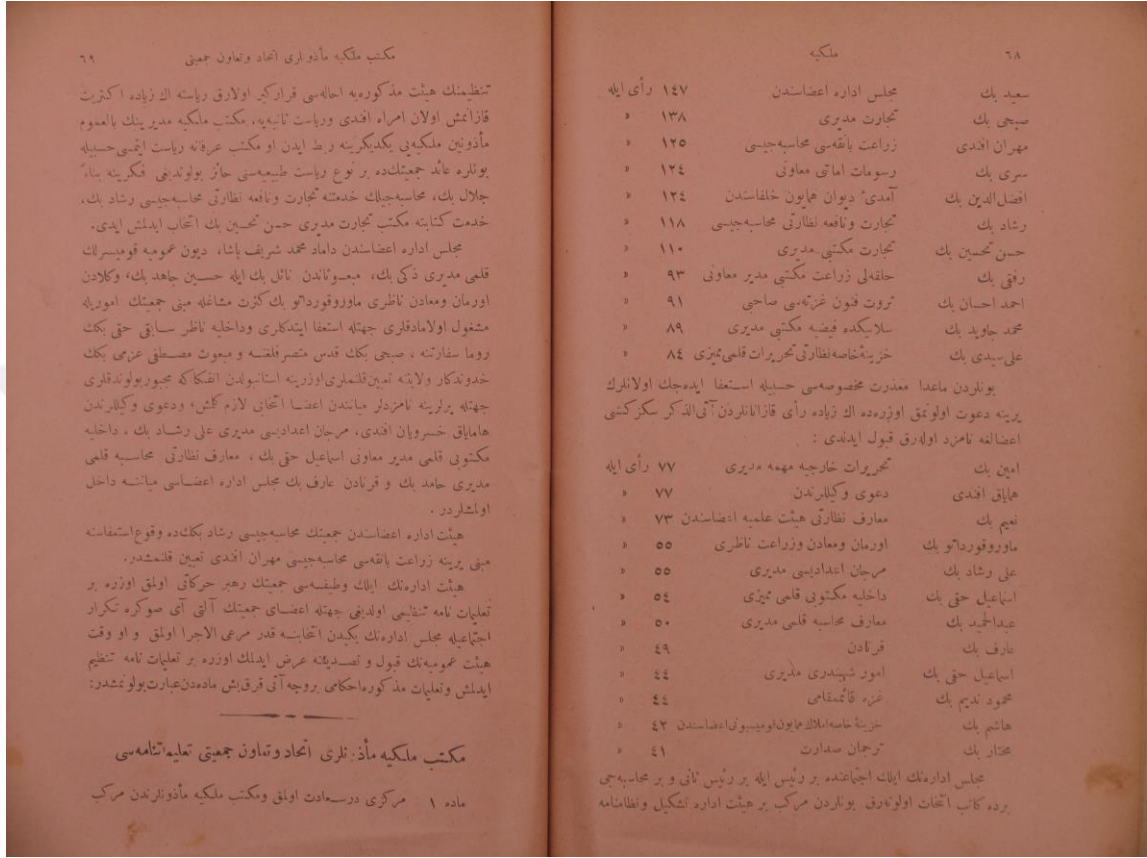 ٦٨
ملكيه
سعيد بك مجلس اداره اعضاسندن ١٤٧ رأى ايله
صبحى بك تجارت مديرى ١٣٨ »
مهران افندى زراعت بانقه‌سى محاسبه‌جيسى ١٢٥ »
سرى بك رسومات اماتى معاونى ١٢٤ »
افضل‌الدين بك آمدىء ديوان همايون خلفاسندن ١٢٤ »
رشاد بك تجارت ونافعه نظارتى محاسبه‌جيسى ١١٨ »
حسن تحسين بك تجارت مكتبى مديرى ١١٠ »
رفقى بك حلقه‌لى زراعت مكتبى مدير معاونى ٩٣ »
احمد احسان بك ثروت فنون غزته‌سى صاحبى ٩١ »
محمد جاويد بك سلانيكده فيضيه مكتبى مديرى ٨٩ »
على سيدى بك خزينهٔ خاصه نظارتى تحريرات قلمى مميزى ٨٤ »
بونلردن ماعدا معذرت مخصوصه‌سى حسبيله استعفا ايده‌جك اولانلرك
يرينه دعوت اولونمق اوزره‌ده اك زياده رأى قازانانلردن آتى‌الذكر سكز كشى
اعضالغه نامزد اوله‌رق قبول ايدندى :
امين بك تحريرات خارجيه مهمه مديرى ٧٧ رأى ايله
هماياق افندى دعوى وكيللرندن ٧٧ »
نعيم بك معارف نظارتى هيئت علميه اعضاسندن ٧٣ »
ماوروقورداتو بك اورمان ومعادن وزراعت ناظرى ٥٥ »
على رشاد بك مرجان اعداديسى مديرى ٥٥ »
اسماعيل حقى بك داخليه مكتوبى قلمى مميزى ٥٤ »
عبدالحميد بك معارف محاسبه قلمى مديرى ٥٠ »
عارف بك قرنادن ٤٩ »
اسماعيل حقى بك امور شهبندرى مديرى ٤٤ »
محمود نديم بك غزه قائممقامى ٤٤ »
هاشم بك خزينهٔ خاصه املاك همايون قوميسيونى اعضاسندن ٤٢ »
مختار بك ترجمان صدارت ٤١ »
مجلس اداره‌نك ايلك اجتماعنده بر رئيس ايله بر رئيس ثانى و بر محاسبه‌جى
برده كاتب انتخاب اولونه‌رق بونلردن مركب بر هيئت اداره تشكيل ونظامنامه
مكتب ملكيه مأذونلرى اتحاد وتعاون جمعيتى
٦٩
تنظيمنك هيئت مذكوره‌يه احاله‌سى قراركير اولارق رياسته اك زياده اكثريت
قازانمش اولان امراه افندى ورياست ثانيه‌يه، مكتب ملكيه مديرينك بالعموم
مأذونين ملكيه‌يى يكديكرينه ربط ايدن او مكتب عرفانه رياست ايتمسى حسبيله
بونلره عائد جمعيتك‌ده بر نوع رياست طبيعيه‌سنى حائز بولونديغى فكرينه بناءً
جلال بك، محاسبه‌جيلك خدمتنه تجارت ونافعه نظارتى محاسبه‌جيسى رشاد بك،
خدمت كتابته مكتب تجارت مديرى حسن تحسين بك انتخاب ايدلمش ايدى.
مجلس اداره اعضاسندن داماد محمد شريف پاشا، ديون عموميه قوميسرلك
قلمى مديرى ذكى بك، مبعوثاندن نائل بك ايله حسين جاهد بك، وكلادن
اورمان ومعادن ناظرى ماوروقورداتو بك كثرت مشاغله مبنى جمعيتك اموريله
مشغول اولامادقلرى جهتله استعفا ايتدكلرى وداخليه ناظر سابقى حقى بكك
روما سفارتنه ، صبحى بكك قدس متصرفلغنه و مبعوث مصطفى عزمى بكك
خداوندكار ولايته تعيين قلنملرى اوزرينه استانبولدن انفكاكه مجبور بولوندقلرى
جهتله يرلرينه نامزدلر مياننده اعضا انتخابى لازم كلمش، ودعوى وكيللرندن
هاماياق خسرويان افندى، مرجان اعداديسى مديرى على رشاد بك ، داخليه
مكتوبى قلمى مدير معاونى اسماعيل حقى بك ، معارف نظارتى محاسبه قلمى
مديرى حامد بك و قرنادن عارف بك مجلس اداره اعضاسى مياننه داخل
اولمشلردر .
هيئت اداره اعضاسندن جمعيتك محاسبه‌جيسى رشاد بكك‌ده وقوع استعفاسنه
مبنى يرينه زراعت بانقه‌سى محاسبه‌جيسى مهران افندى تعيين قلنمشدر.
هيئت اداره‌نك ايلك وظيفه‌سى جمعيتك رهبر حركاتى اولمق اوزره بر
تعليمات نامه تنظيمى اولديغى جهتله اعضاى جمعيتك آلتى آى صوكره تكرار
اجتماعيله مجلس اداره‌نك يكيدن انتخابنه قدر مرعى الاجرا اولمق و او وقت
هيئت عموميه‌نك قبول و تصديقنه عرض ايدلمك اوزره بر تعليمات نامه تنظيم
ايدلمش وتعليمات مذكوره احكامى بروجه آتى قرق بش ماده‌دن عبارت بولونمشدر:
مكتب ملكيه مأذونلرى اتحاد وتعاون جمعيتى تعليماتنامه‌سى
ماده ١ مركزى درسعادت اولمق ومكتب ملكيه مأذونلرندن مركب